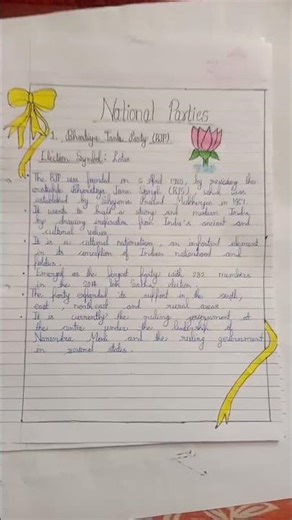 National Parties
1. Bharatiya Janta Party (BJP)
Election Symbol: Lotus
• The BJP was founded on 6 April 1980, by reviving the
Bharatiya Jana Sangh (BJS), which was
established by Shyama Prasad Mukherjee in 1951.
• It wants to build a strong and modern India
by drawing inspiration from India's ancient
cultural values.
• It is a cultural nationalism, an important element
in its conception of Indian nationhood and
politics.
• Emerged as the largest party with 282 members
in the 2014 Lok Sabha election.
• The party expanded its support in the south,
east, north-east and rural areas
• It is currently the ruling government at
the centre under the leadership of
Narendra Modi and the ruling government
in several states.